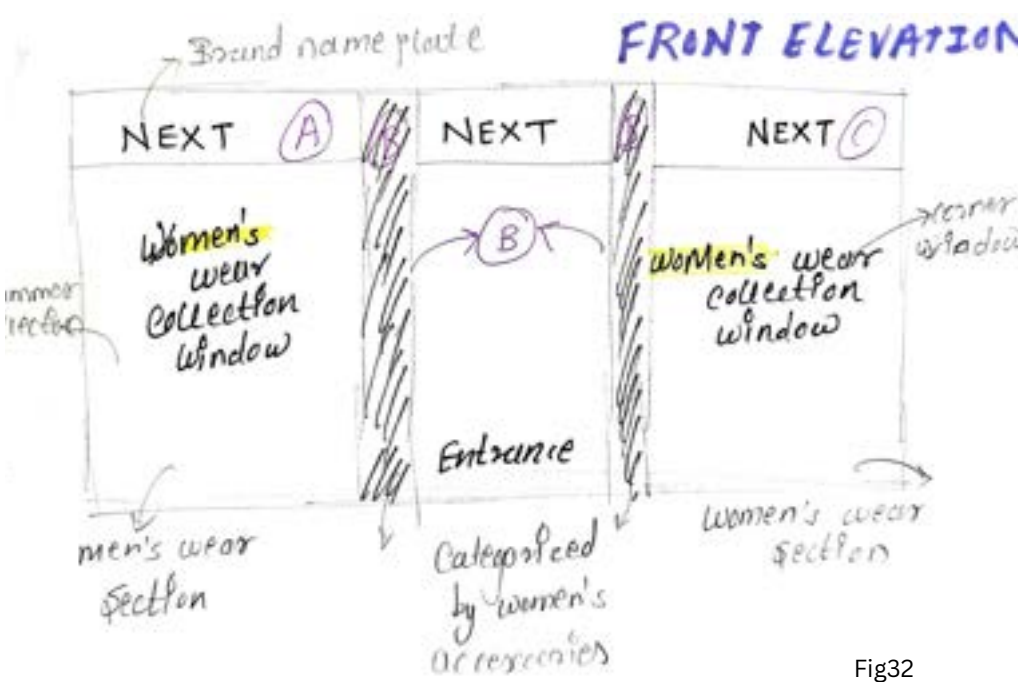 FRONT ELEVATION
Brand name plate
NEXT A
NEXT
NEXT C
Women's
wear
collection
window
B
women's wear
collection
window
corner
window
Entrance
men's wear
section
Categoriced
by women's
accessories
women's wear
section
Fig32